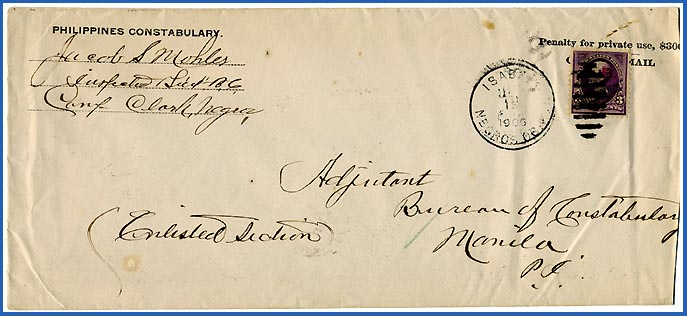 PHILIPPINES CONSTABULARY.
Jacob S Mohler
Inspector
Camp Clark, Negros
Penalty for private use, $300
MAIL
ISABELA
18
1905
NEGROS OCC.
3
Adjutant
Bureau of Constabulary
Manila
P.I.
(Enlisted Section)